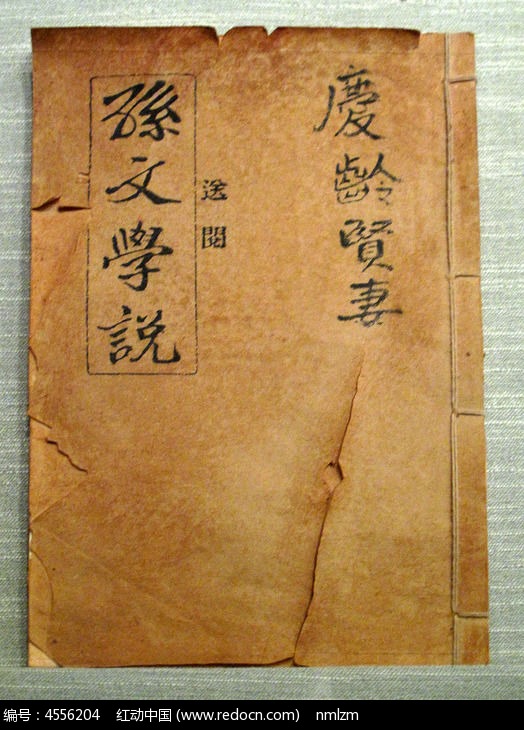 慶齡賢妻
送閱
孫文學説
编号：4556204 红动中国 (www.redocn.com) nmlzm